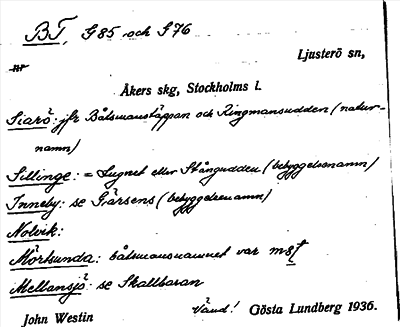 BT, G 85 och S 76
Ljusterö sn,
Åkers skg, Stockholms l.
Siarö: jfr Båtsmanstäppan och Ringmansudden (natur-
namn)
Sillinge: = Lugnet eller Stångudden (bebyggelsenamn)
Inneby: se Gärsens (bebyggelsenamn)
Nolvik:
Mörtsunda: båtsmansnamnet var
Mellansjö: se Skallbaran
John Westin
Vänd! Gösta Lundberg 1936.